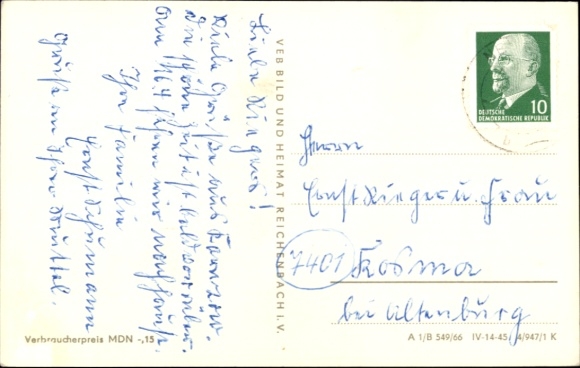 Liebe Riegers!
Viele Grüße aus Farnrode.
Die schöne Zeit ist bald vorüber.
Am 16.ten fahren wir nach Haus.
Ihre Familie
Ernst Schumann
Grüße an Ihre Mutter.
VEB BILD UND HEIMAT REICHENBACH I. V.
DEUTSCHE 10
DEMOKRATISCHE REPUBLIK
Herrn
Ernst Rieger u. Frau
7401 Kosma
bei Altenburg
Verbraucherpreis MDN -,15
A 1/B 549/66 IV-14-45 4/947/1 K